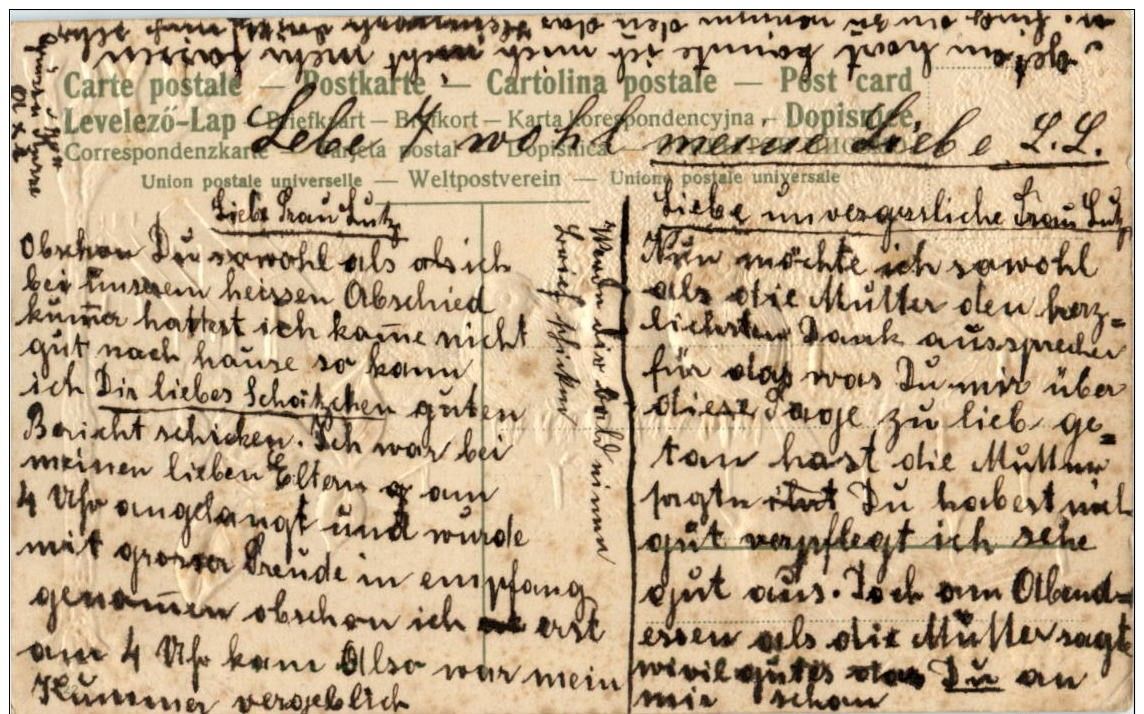 Carte postale — Postkarte — Cartolina postale — Post card
Levelező-Lap — Briefkaart — Brefkort — Karta korespondencyjna — Dopisnice
Correspondenzkarte — Tarjeta postal — Dopisnica
Union postale universelle — Weltpostverein — Union postale universale
Lebe wohl meine Liebe L.L.
Liebe Frau Lutz
Obschon Du sowohl als als ich
bei unserem heissen Abschied
kum̄er hattest ich kam̄e nicht
gut nach hause so kann
ich Dir liebes Schätzchen guten
Bericht schicken. Ich war bei
meinen lieben Eltern am
4 Uhr angelangt und wurde
mit grosser Freude in empfang
genom̄en obschon ich erst
am 4 Uhr kam Also war mein
Kummer vergeblich
Werde dir bald einen
Brief schicken
Liebe unvergessliche Frau Lutz
Nun möchte ich sowohl
als die Mutter den herz=
lichsten Dank aussprechen
für das was Du mir über
diese Tage zu lieb ge=
tan hast die Mutter
sagte Du habest mich
gut verpflegt ich sehe
gut aus. Doch am Abend=
essen als die Mutter sagte
wivil gutes Du an
mir schon
getan hast konnte ich mich nicht mehr fassen